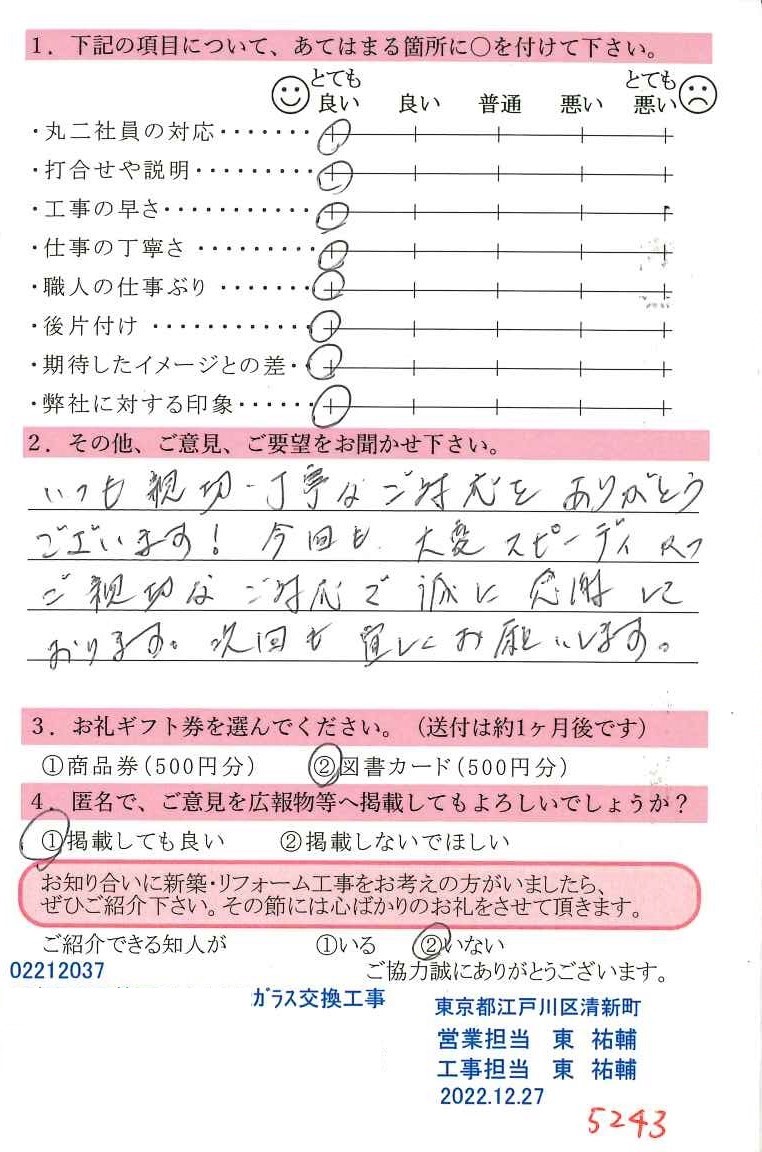 1．下記の項目について、あてはまる箇所に○を付けて下さい。
とても良い 良い 普通 悪い とても悪い
・丸二社員の対応・・・・・・・
・打合せや説明・・・・・・・・・
・工事の早さ・・・・・・・・・・・
・仕事の丁寧さ・・・・・・・・・
・職人の仕事ぶり・・・・・・・
・後片付け・・・・・・・・・・・・
・期待したイメージとの差・・
・弊社に対する印象・・・・・・
2．その他、ご意見、ご要望をお聞かせ下さい。
いつも親切・丁寧なご対応をありがとう
ございます！今回も、大変スピーディかつ
ご親切なご対応で誠に感謝して
おります。次回も宜しくお願いします。
3．お礼ギフト券を選んでください。（送付は約1ヶ月後です）
①商品券（500円分） ②図書カード（500円分）
4．匿名で、ご意見を広報物等へ掲載してもよろしいでしょうか？
①掲載しても良い ②掲載しないでほしい
お知り合いに新築・リフォーム工事をお考えの方がいましたら、
ぜひご紹介下さい。その節には心ばかりのお礼をさせて頂きます。
ご紹介できる知人が ①いる ②いない
02212037
ご協力誠にありがとうございます。
ガラス交換工事
東京都江戸川区清新町
営業担当 東 祐輔
工事担当 東 祐輔
2022.12.27
5243